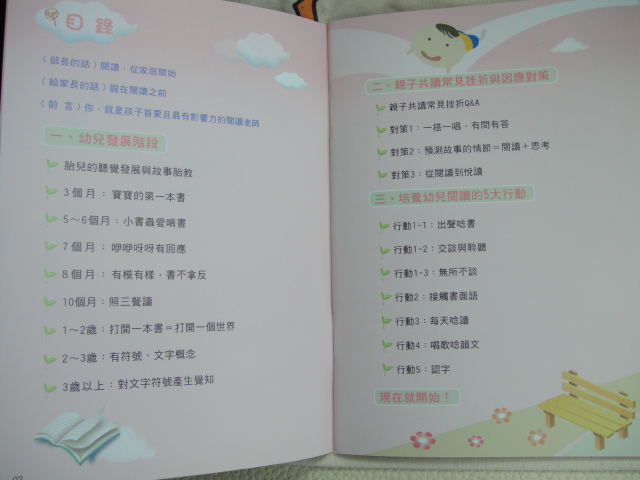 目錄
〈部長的話〉閱讀，從家庭開始
〈給家長的話〉說在閱讀之前
〈前 言〉你，就是孩子首要且最有影響力的閱讀老師
一、幼兒發展階段
胎兒的聽覺發展與故事胎教
3個月：寶寶的第一本書
5～6個月：小書蟲愛啃書
7個月：咿咿呀呀有回應
8個月：有模有樣，書不拿反
10個月：照三餐讀
1～2歲：打開一本書＝打開一個世界
2～3歲：有符號、文字概念
3歲以上：對文字符號產生覺知
二、親子共讀常見挫折與因應對策
親子共讀常見挫折Q&A
對策1：一搭一唱，有問有答
對策2：預測故事的情節＝閱讀＋思考
對策3：從閱讀到悅讀
三、培養幼兒閱讀的5大行動
行動1-1：出聲唸書
行動1-2：交談與聆聽
行動1-3：無所不談
行動2：接觸書面語
行動3：每天唸讀
行動4：唱歌唸韻文
行動5：認字
現在就開始！